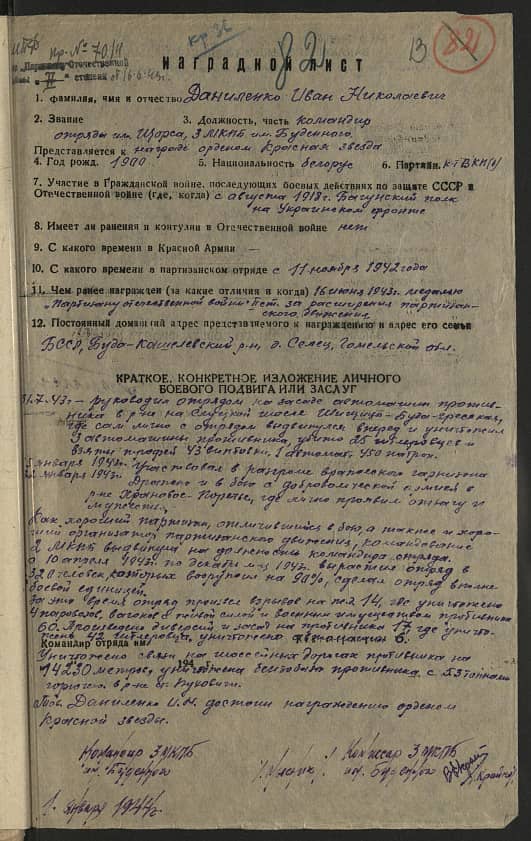 кр 36
пр. № 70/н
82
13
821
"Партизану Отечественной
войны" II степени от 16.6.43г.
НАГРАДНОЙ ЛИСТ
1. Фамилия, имя и отчество Даниленко Иван Николаевич
2. Звание 3. Должность, часть командир
отряда им. Щорса, 3 МКПБ им. Буденного.
Представляется к награде орденом Красная звезда
4. Год рожд. 1900 5. Национальность белорус 6. Партийн. к-т ВКП(б)
7. Участие в Гражданской войне, последующих боевых действиях по защите СССР и
Отечественной войне (где, когда) с августа 1918 г. Багунский полк
на Украинском фронте
8. Имеет ли ранения и контузии в Отечественной войне нет
9. С какого времени в Красной Армии —
10. С какого времени в партизанском отряде с 11 ноября 1942 года
11. Чем ранее награжден (за какие отличия и когда) 16 июня 1943 г. медалью
"Партизану отечественной войны" II ст. за расширения партизан-
ского движения
12. Постоянный домашний адрес представляемого к награждению и адрес его семьи
БССР, Буда-Кошелевский р-н, д. Селец, Гомельской обл.
КРАТКОЕ, КОНКРЕТНОЕ ИЗЛОЖЕНИЕ ЛИЧНОГО
БОЕВОГО ПОДВИГА ИЛИ ЗАСЛУГ
7.43г – руководил отрядом на засаде автомашин против-
ника в р-не на Слуцкой шоссе
где сам лично с отрядом выдвинулся вперед и уничтожил
3 автомашины противника, убито 25 гитлеровцев и
взяты трофеи 43 винтовки, 1 автомат, 450 патрон.
января 1943г. участвовал в разгроме вражеского гарнизона
января 1943г. и в бою с
р-не где лично проявил отвагу и
мужество.
Как хороший партизан, отличившийся в бою, а также и хоро-
ший организатор партизанского движения, командование
МКПБ выдвинуло на должность командира отряда.
с 10 апреля 1943г. по декабрь м-ц 1943г. вырастил отряд в
320 человек, которых вооружил на 90%, сделал отряд вполне
боевой единицей.
За это время отряд произвел взрывов на жд 14, где уничтожено
паровозов, вагонов с живой силой и военным имуществом противника
60. Произведено диверсий и засад на противника 17, где уничто-
жено 42 гитлеровца, уничтожено автомашин 6.
Командир отряда им.
194 г.
Уничтожено связи на шоссейных дорогах противника на
14230 метров, уничтожена противника с 53 тоннами
горючего в р-не ст.
Тов. Даниленко И.Н. достоин награждению орденом
Красной звезды.
Командир 3 МКПБ
им. Буденного
Комиссар 3 МКПБ
им. Буденного
1. января 1944г.